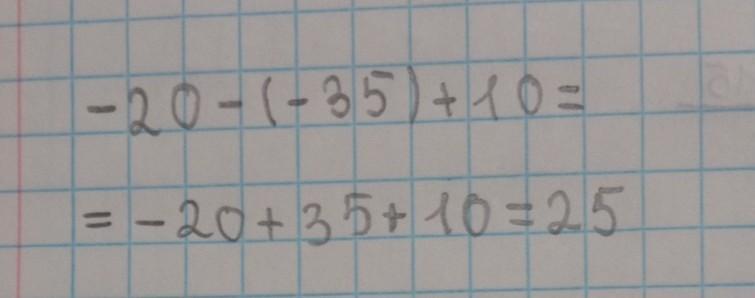 -20-(-35)+10=
=-20+35+10=25